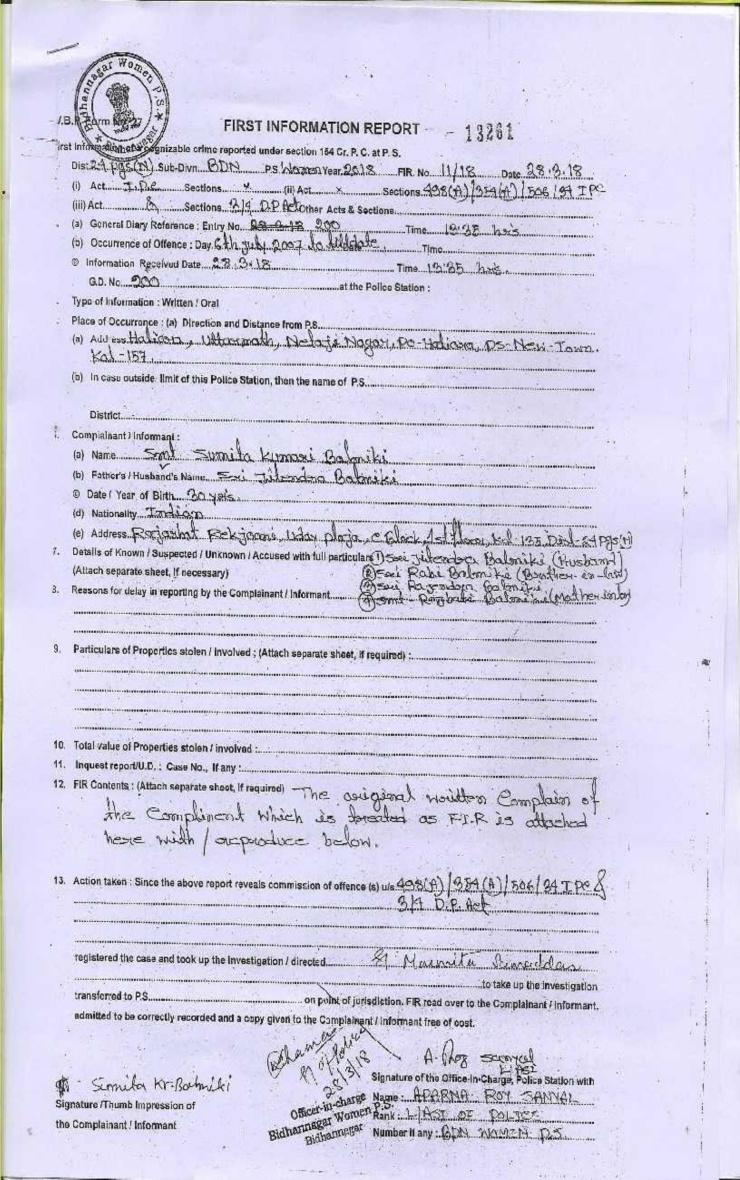 Bidhannagar Women P.S.
FIRST INFORMATION REPORT - 13261
First Information of a cognizable crime reported under section 154 Cr. P. C. at P. S.
Dist 24 Pgs (N) Sub-Divn. BDN P.S. Women Year 2018 FIR. No. 11/18 Date 28.3.18
(i) Act I.P.C Sections × (ii) Act × Sections 498(A)/354(A)/506/34 IPC
(iii) Act & Sections 3/4 D.P Act Other Acts & Sections
(a) General Diary Reference : Entry No. 200 Time
(b) Occurrence of Offence : Day 6th July 2007 to till date. Time
© Information Received Date 28.3.18 Time
G.D. No. 200 at the Police Station :
Type of Information : Written / Oral
Place of Occurrence : (a) Direction and Distance from P.S.
(a) Address Hatiara, Uttarmath, Netaji Nagar, Po-Hatiara, PS-New-Town.
Kol-157
(b) In case outside limit of this Police Station, then the name of P.S.
District
Complainant / Informant :
(a) Name Smt Sumita Kumari Balmiki
(b) Father's / Husband's Name Sri Jitendra Balmiki
© Date / Year of Birth 30 yrs.
(d) Nationality Indian
(e) Address Rajarhat Rekjoani, Uday plaza, C Block, 1st floor, Kol-135, Dist-24 Pgs(N)
7. Details of Known / Suspected / Unknown / Accused with full particulars (1) Sri Jitendra Balmiki (Husband)
(Attach separate sheet, If necessary) (2) Sri Rabi Balmiki (Brother-in-law)
(3) Sri Rajendra Balmiki
8. Reasons for delay in reporting by the Complainant / Informant (4) Smt Balmiki (Mother in law)
9. Particulars of Properties stolen / Involved ; (Attach separate sheet, if required) :
10. Total value of Properties stolen / involved :
11. Inquest report/U.D. : Case No., If any :
12. FIR Contents : (Attach separate shoot, If required) The original written Complain of
the Compliment which is treated as F.I.R is attached
here with / reproduce below.
13. Action taken : Since the above report reveals commission of offence (s) u/s 498(A)/354(A)/506/34 IPC &
3/4 D.P. Act
registered the case and took up the Investigation / directed
to take up the investigation
transferred to P.S. on point of jurisdiction. FIR read over to the Complainant / Informant,
admitted to be correctly recorded and a copy given to the Complainant / Informant free of cost.
28/3/18
A. Roy Sanyal
L/ASI
Sumita Kr. Balmiki
Signature of the Office-in-Charge, Police Station with
Signature /Thumb Impression of
the Complainant / Informant
Officer-in-charge
Bidhannagar Women P.S.
Bidhannagar
Name : APARNA ROY SANYAL
Rank : L/ASI OF POLICE
Number if any : BDN WOMEN P.S.